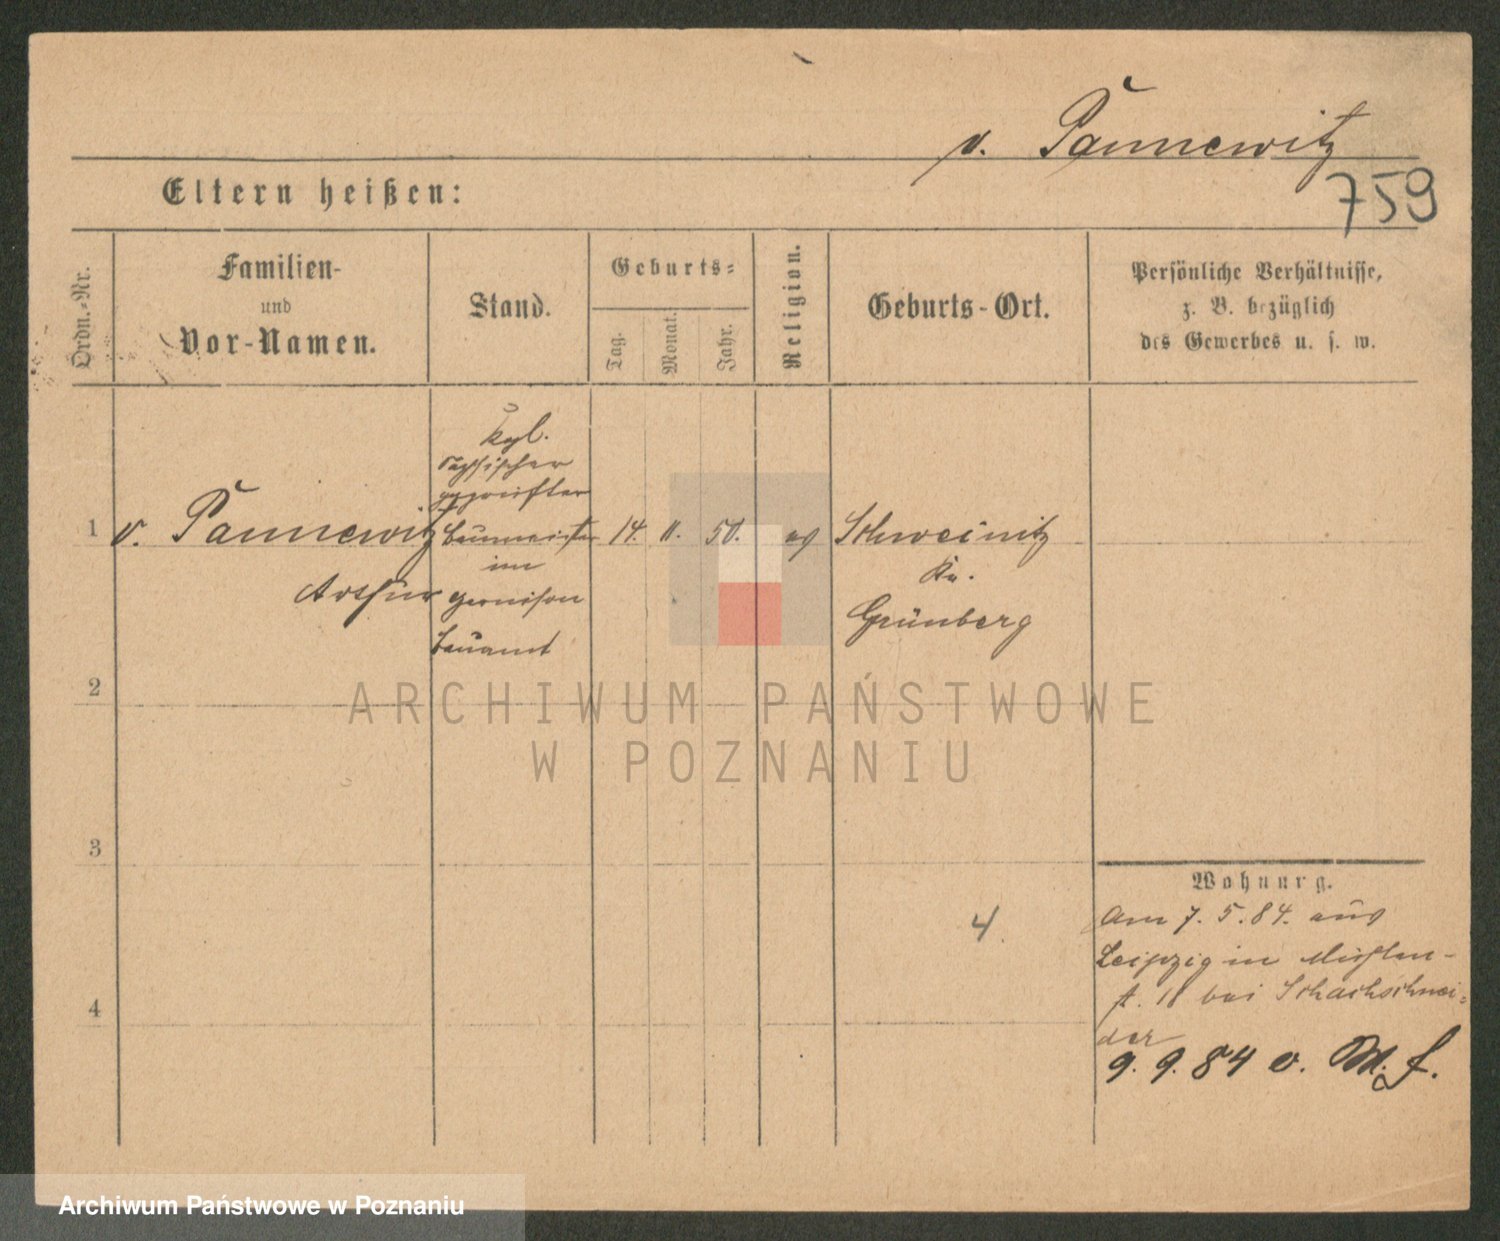 v. Pannewitz
759
Eltern heißen:
Ordn.-Nr.
Familien-
und
Vor-Namen.
Stand.
Geburts-
Tag.
Monat.
Jahr.
Religion.
Geburts-Ort.
Persönliche Verhältnisse,
z. B. bezüglich
des Gewerbes u. s. w.
1
v. Pannewitz
Arthur
Kgl.
Sächsischer
geprüfter
Baumeister
im
Garnison
Bauamt
14.
11.
50.
ev
Schweinitz
Kr.
Grünberg
2
3
4
4.
Wohnung.
Am 7. 5. 84. aus
Leipzig in Mühlen-
st. 18 bei Schachschnei-
der
9. 9. 84 v. M. f.
ARCHIWUM PAŃSTWOWE
W POZNANIU
Archiwum Państwowe w Poznaniu